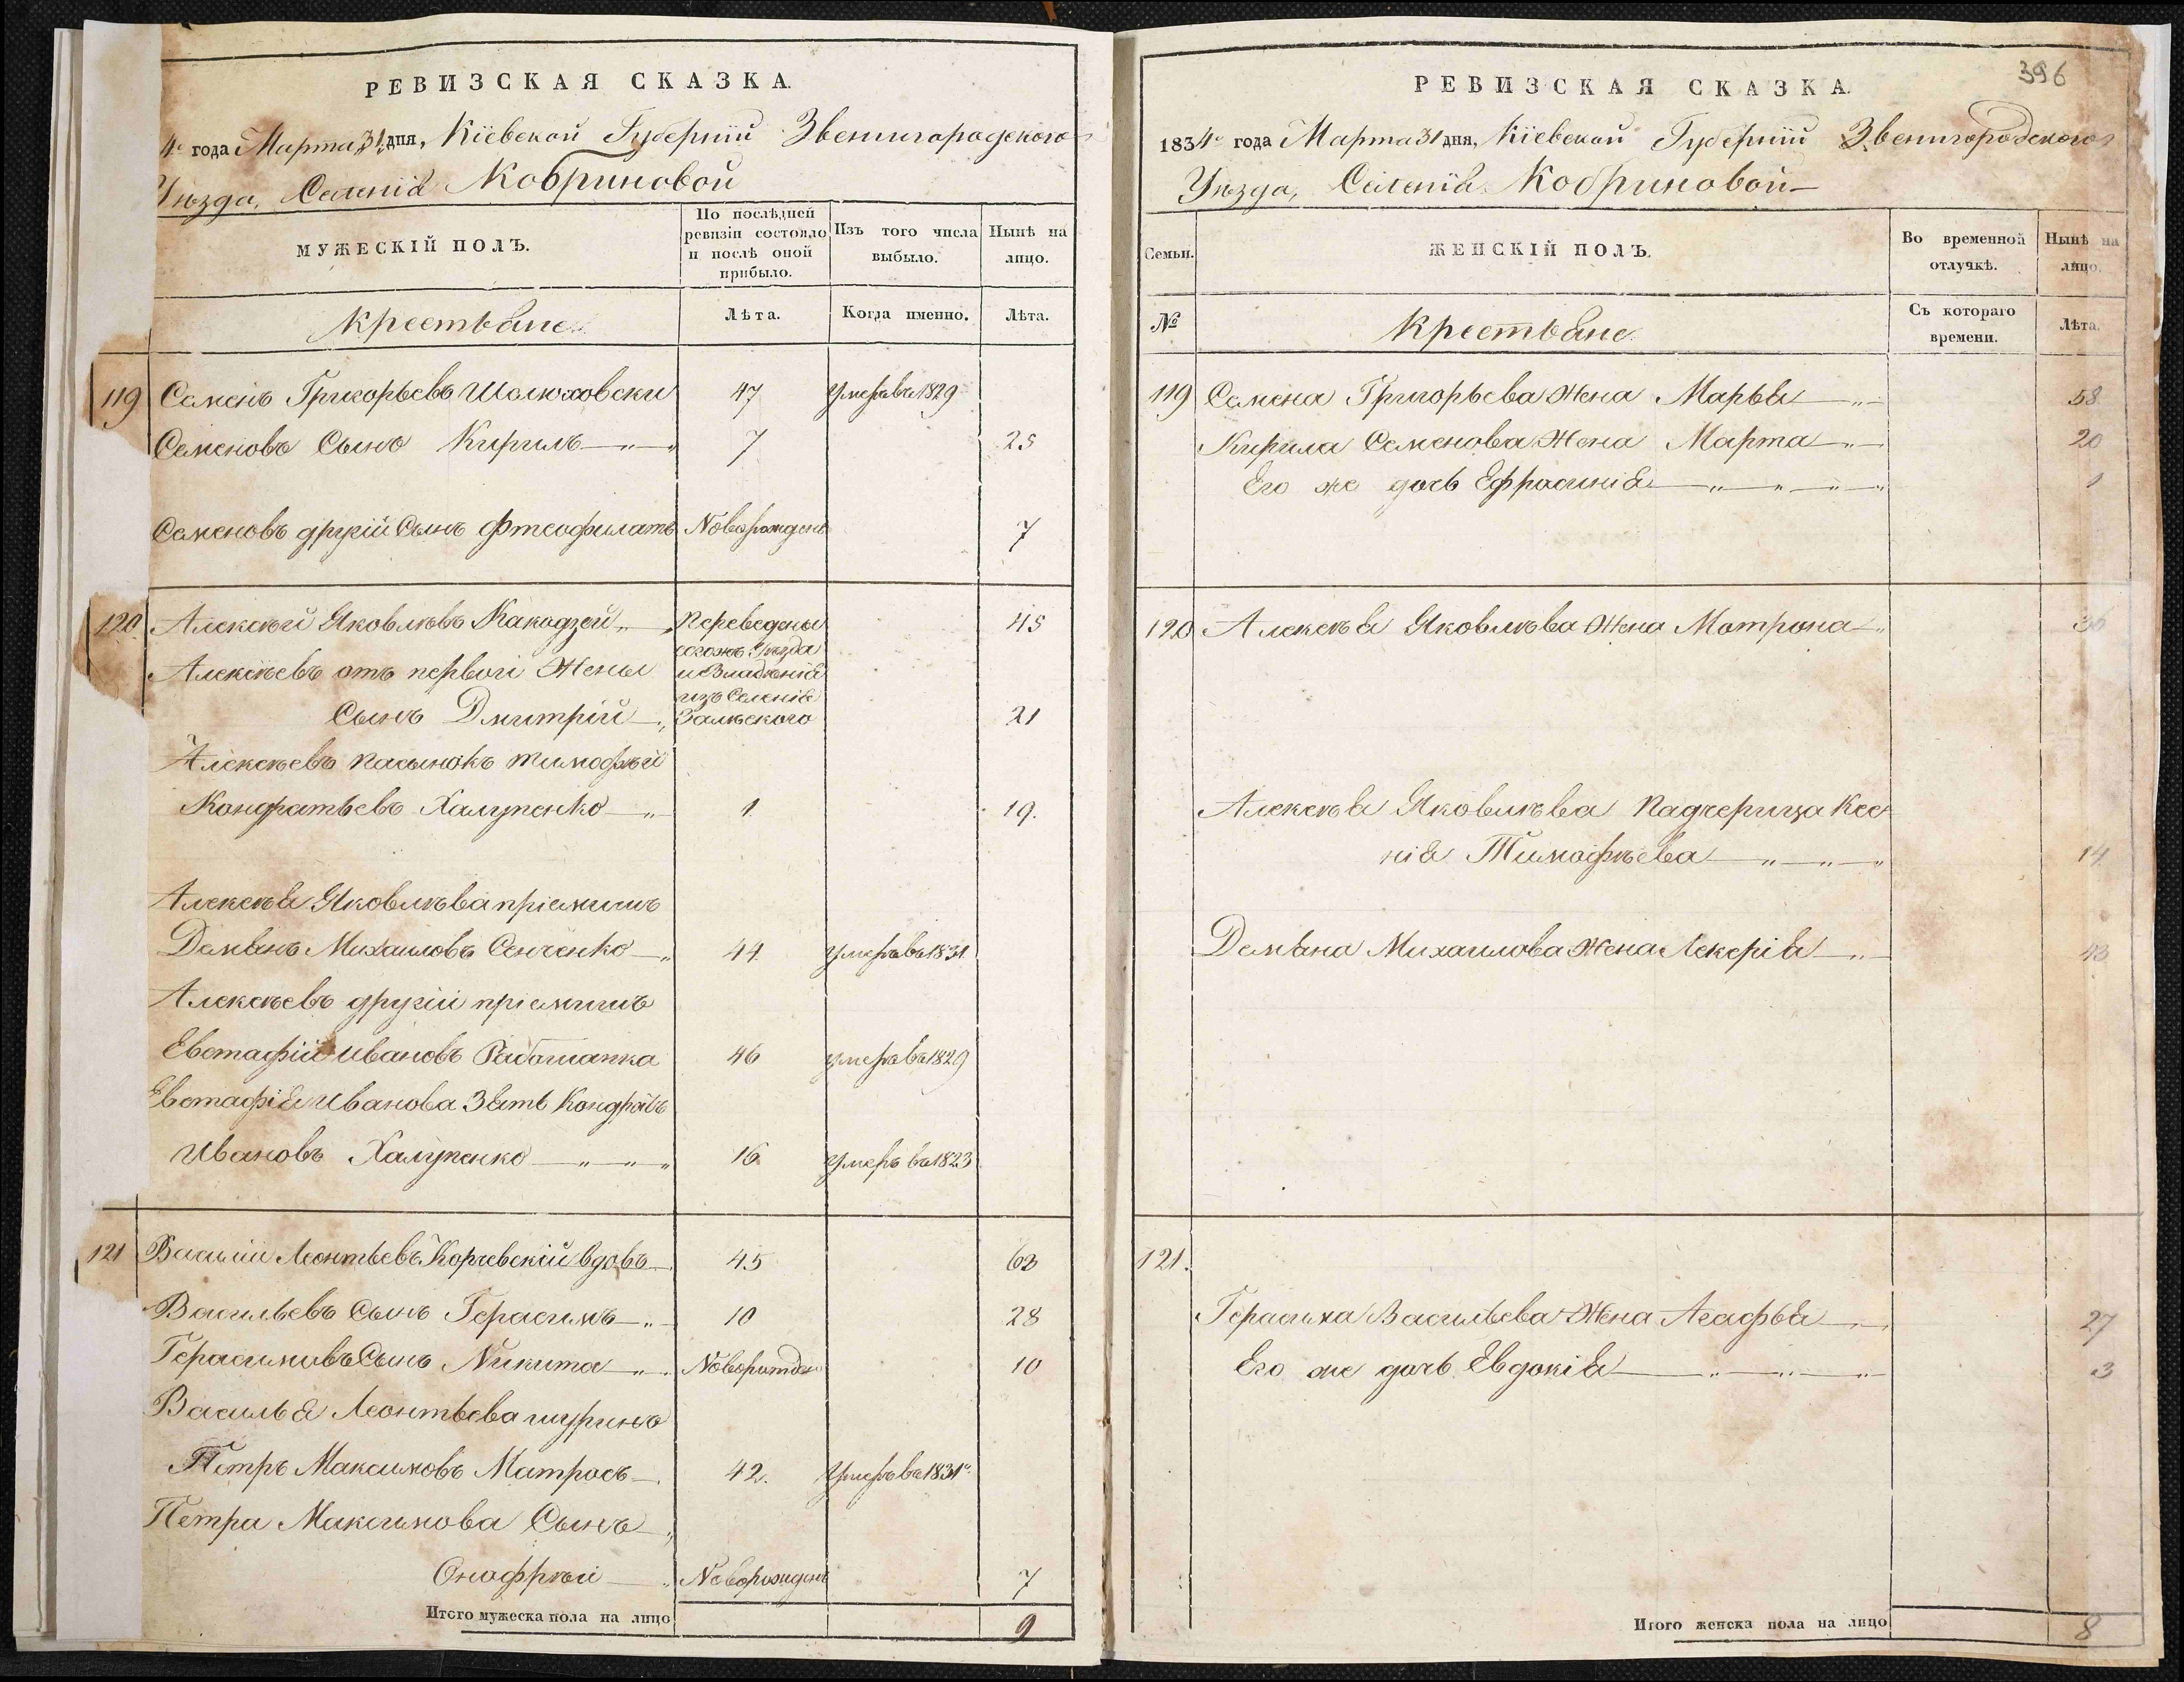 РЕВИЗСКАЯ СКАЗКА.
4го года Марта 31 дня, Кіевской Губерніи Звенигородского
Уѣзда, Селенія Кобриновой
МУЖЕСКІЙ ПОЛЪ.
По послѣдней ревизіи состояло и послѣ оной прибыло.
Изъ того числа выбыло.
Нынѣ на лицо.
Крестьяне
Лѣта.
Когда именно.
Лѣта.
119 Семенъ Григорьевъ Шолюховски 47 умеръ въ 1829
Семеновъ Сынъ Кирилъ 7 25
Семеновъ другій Сынъ Фтеофилатъ Новорожденъ 7
120 Алексѣй Яковлѣвъ Какодзей Переведены 45
согожъ Уѣзда
Алексѣевъ отъ первой Жены и Владѣнія
изъ Селенія
Сынъ Дмитрій Залѣского 21
Алексѣевъ пасынокъ Тимофѣй
Кондратьевъ Халупенко 1 19.
Алексѣя Яковлѣва пріемишъ
Демянъ Михаиловъ Сенченко 44 умеръ въ 1831
Алексѣевъ другій пріемишъ
Евстафій Ивановъ Рабошапка 46 умеръ въ 1829
Евстафія Иванова Зять Кондратъ
Ивановъ Халупенко 16 умеръ въ 1823
121 Василій Леонтьевъ Корчевскій вдовъ 45 63
Васильевъ Сынъ Герасимъ 10 28
Герасимивъ Сынъ Никита Новорожден 10
Василья Леонтьева шуринъ
Петръ Максимовъ Матросъ 42. Умеръ въ 1831
Петра Максимова Сынъ
Онофрѣй Новорожденъ 7
Итого мужеска пола на лицо 9
396
РЕВИЗСКАЯ СКАЗКА.
1834го года Марта 31 дня, Кіевской Губерніи Звенигородского
Уѣзда, Селенія Кобриновой
Семьи.
ЖЕНСКІЙ ПОЛЪ.
Во временной отлучкѣ.
Нынѣ на лицо.
№
Крестьяне
Съ котораго времени.
Лѣта.
119 Семена Григорьева Жена Марья 58
Кирила Семенова Жена Марта 20
Его же дочь Ефросинія 1
120 Алексѣя Яковлѣва Жена Мотрона 36
Алексѣя Яковлѣва Падчерица Ксе
нія Тимофѣева 14
Демяна Михаилова Жена Лекерія 43
121.
Герасима Васильева Жена Агафья 27
Его же дочь Евдокія 3
Итого женска пола на лицо 8